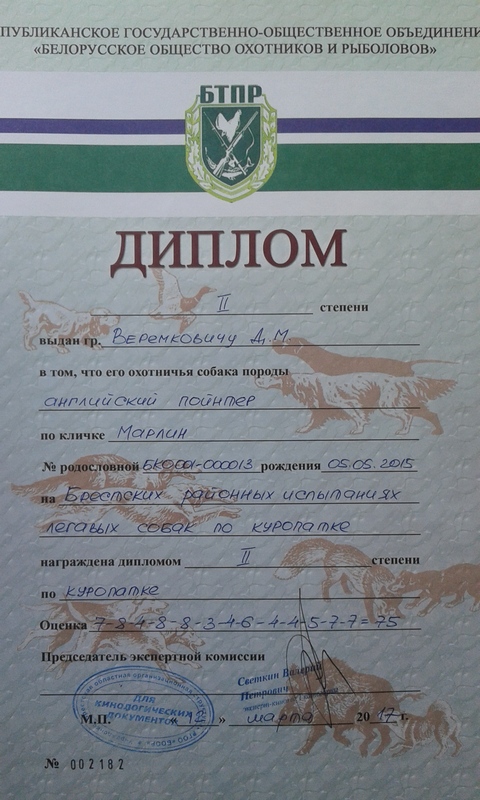 ПУБЛИКАНСКОЕ ГОСУДАРСТВЕННО-ОБЩЕСТВЕННОЕ ОБЪЕДИНЕНИ
«БЕЛОРУССКОЕ ОБЩЕСТВО ОХОТНИКОВ И РЫБОЛОВОВ»
БТПР
ДИПЛОМ
II степени
выдан гр. Веремковичу Д.М
в том, что его охотничья собака породы
английский пойнтер
по кличке Марлин
№ родословной БКО001-000013 рождения 05.05.2015
на Брестских районных испытаниях
легавых собак по куропатке
награждена дипломом II степени
по куропатке
Оценка 7-8-4-8-8-3-4-6-4-4-5-7-7=75
Председатель экспертной комиссии
Светкин Валерий
Петрович
ДЛЯ
КИНОЛОГИЧЕСКИХ
ДОКУМЕНТОВ
М.П. « » марта 2017 г.
№ 002182